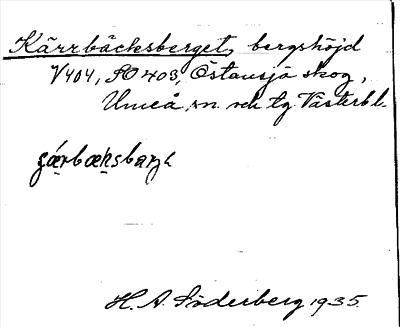 Kärrbäcksberget, bergshöjd
V 404, SO 403, Östansjö skog,
Umeå sn. och tg. Västerb. l.
H. A. Söderberg 1935.